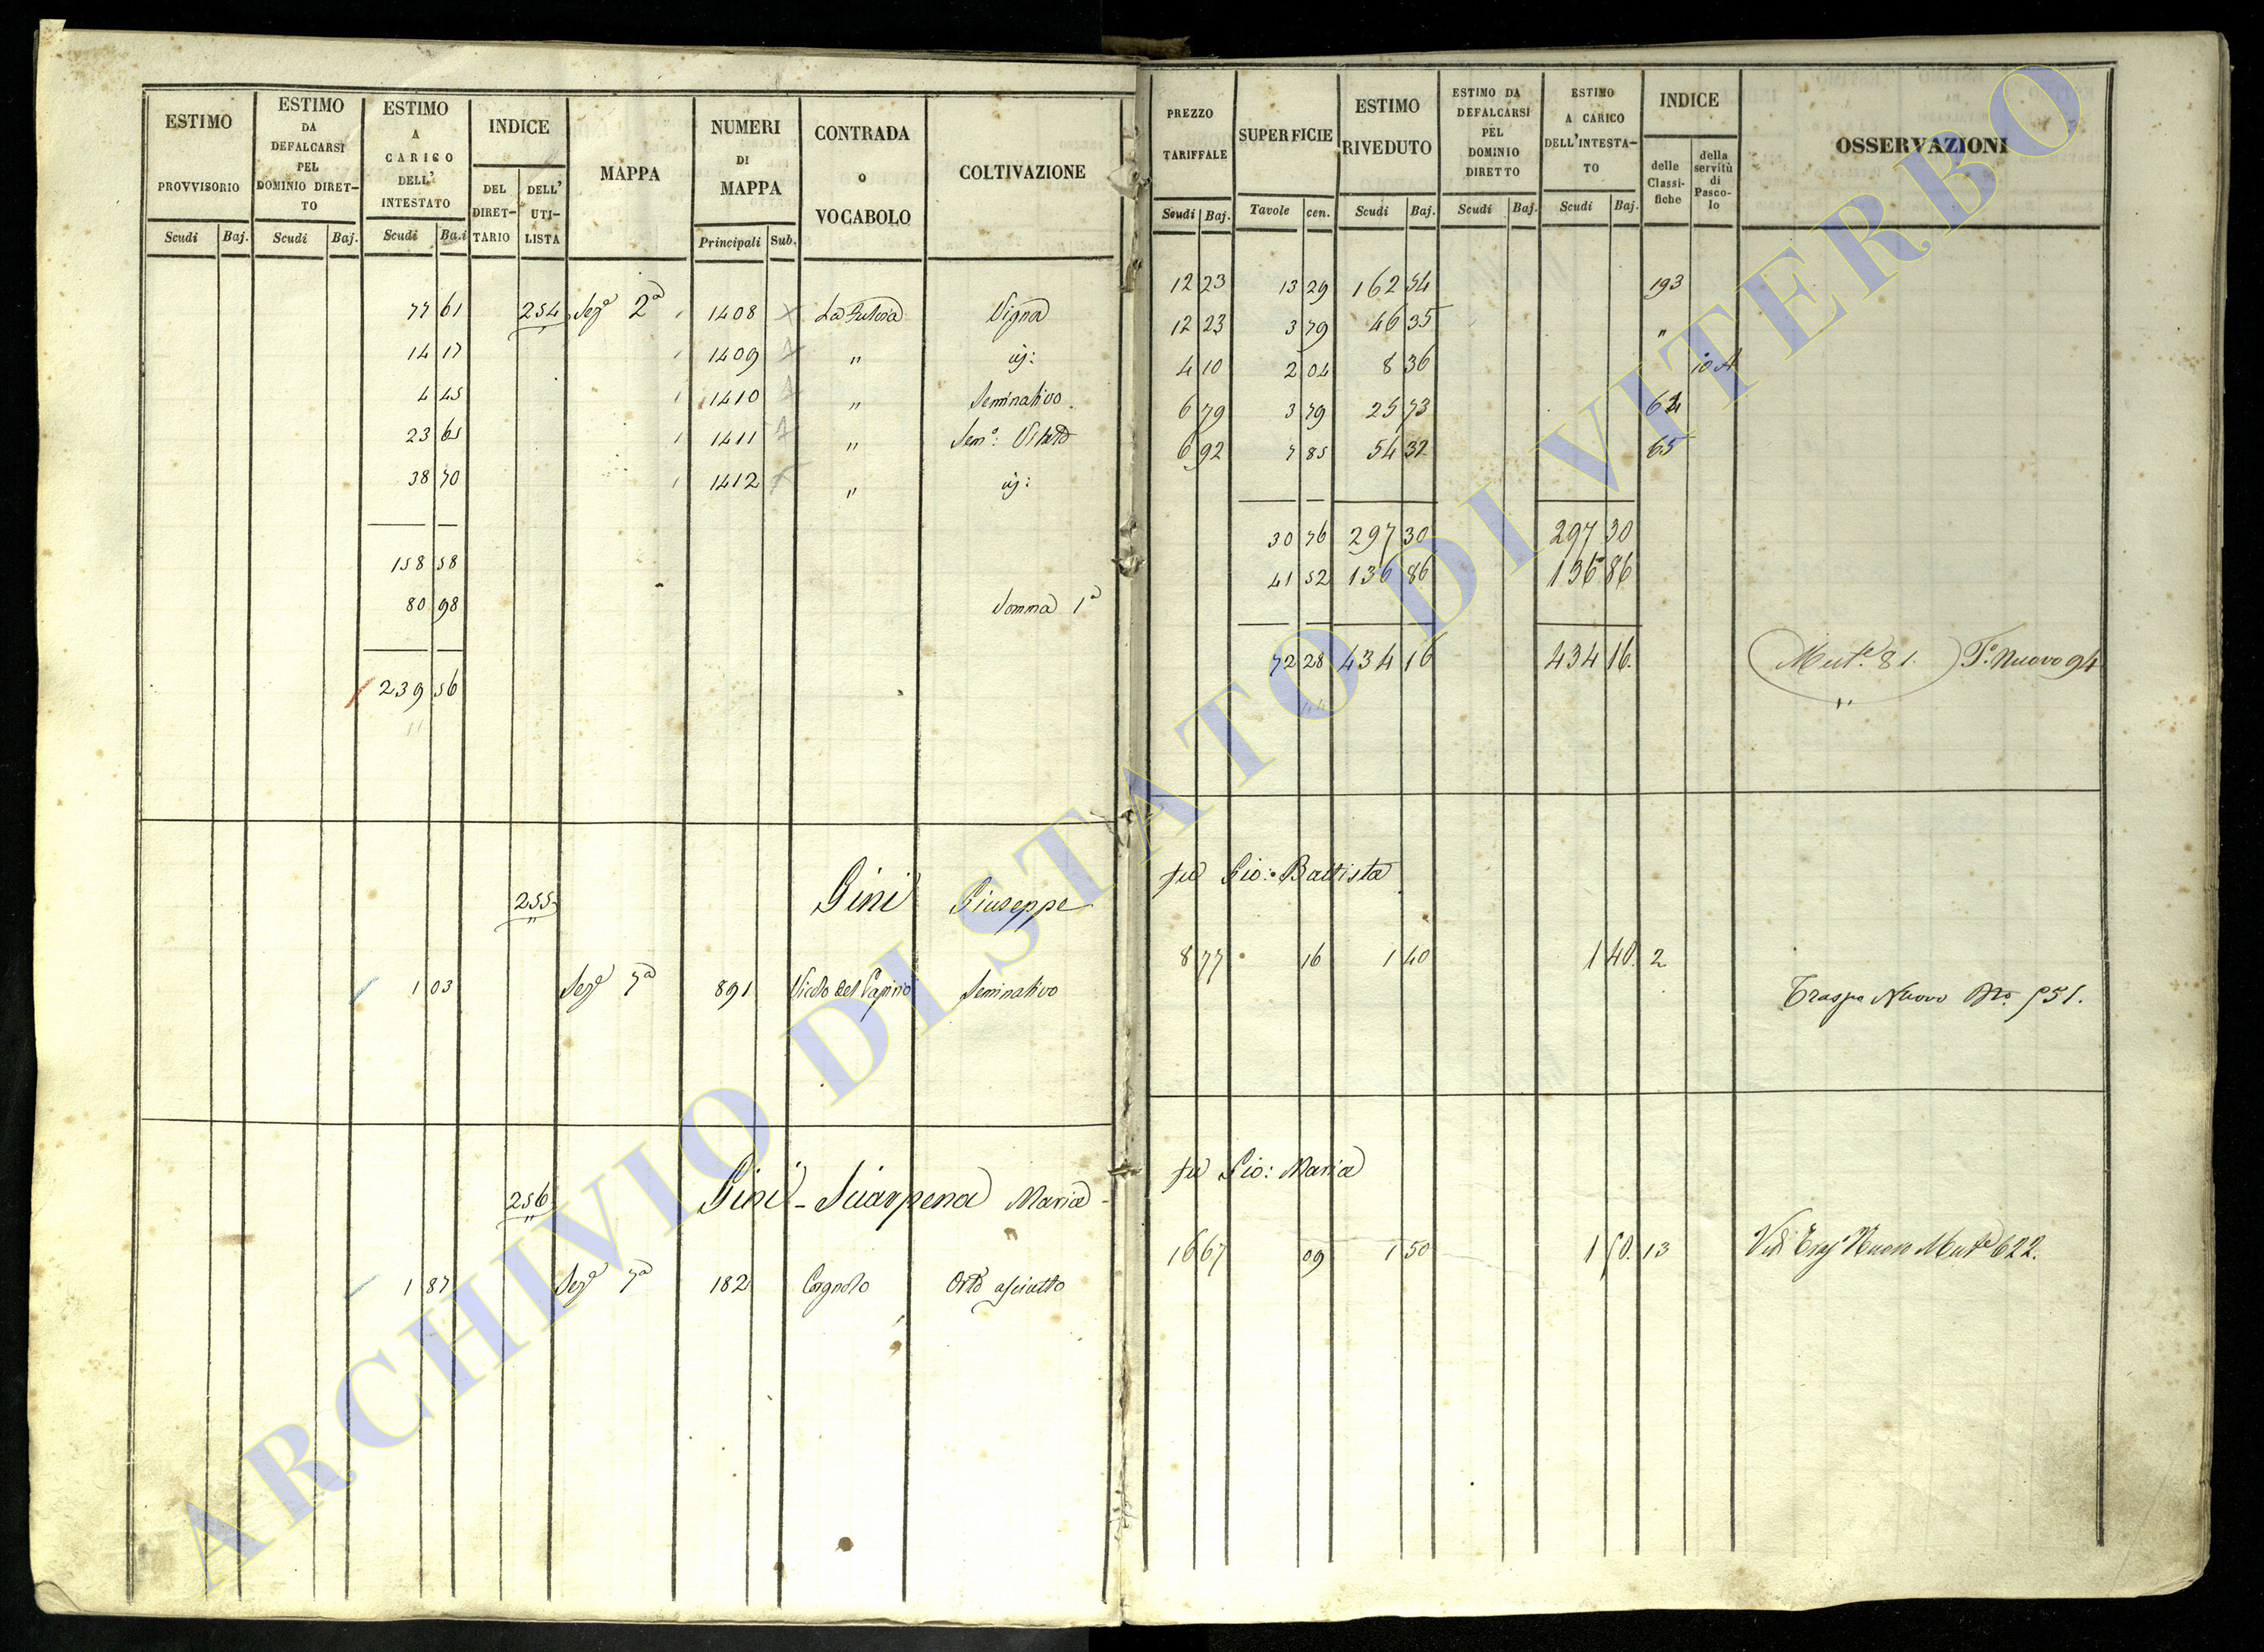 ESTIMO PROVVISORIO
ESTIMO DA DEFALCARSI PEL DOMINIO DIRET-TO
ESTIMO A CARICO DELL' INTESTATO
INDICE
DEL DIRET-TARIO
DELL' UTI-LISTA
MAPPA
NUMERI DI MAPPA
CONTRADA O VOCABOLO
COLTIVAZIONE
Scudi Baj. Scudi Baj. Scudi Baj. Principali Sub.
77 61 254 Sezᵉ 2ᵃ 1408 Vigna
14 17 1409 " id:
4 45 1410 " Seminativo
23 65 1411 " Semº: Vitato
38 70 1412 " id:
158 58
80 98 Somma 1ᵃ
239 56
255 Gini Giuseppe
1 03 Sezᵉ 7ᵃ 891 Vicolo del Seminativo
256 Gini - Sciarpena Maria
1 87 Sezᵉ 7ᵃ 182 Cognolo Orto asciutto
PREZZO TARIFFALE
SUPERFICIE
ESTIMO RIVEDUTO
ESTIMO DA DEFALCARSI PEL DOMINIO DIRETTO
ESTIMO A CARICO DELL'INTESTA-TO
INDICE
delle Classi-fiche
della servitù di Pasco-lo
OSSERVAZIONI
Scudi Baj. Tavole cen. Scudi Baj. Scudi Baj. Scudi Baj.
12 23 13 29 162 54 193
12 23 3 79 46 35 "
4 10 2 04 8 36
6 79 3 79 25 73 64
6 92 7 85 54 32 65
30 76 297 30 297 30
41 52 136 86 136 86
72 28 434 16 434 16. Mutᵉ 81. Tº Nuovo 94
fu Gio: Battista
8 77 16 1 40 1 40. 2
Nuovo 951.
fu Gio: Maria
16 67 09 1 50 1 50. 13 Vedi Trasp Nuovo Mutᵉ 622.
ARCHIVIO DI STATO DI VITERBO